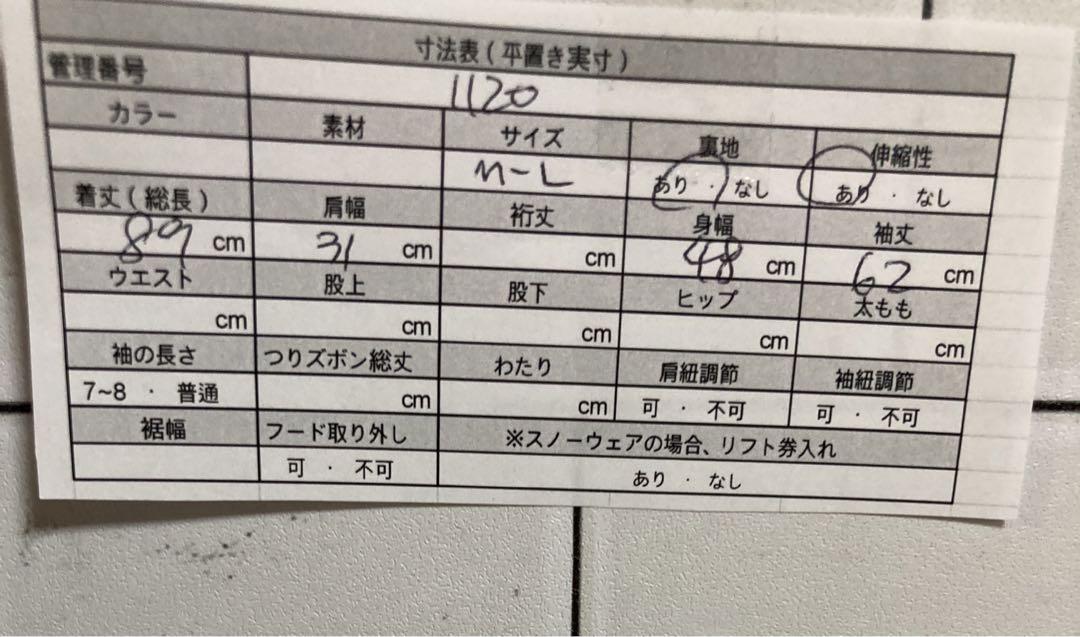 寸法表(平置き実寸)
管理番号 1120
カラー 素材 サイズ 裏地 伸縮性
M-L あり ・ なし あり ・ なし
着丈(総長) 肩幅 裄丈 身幅 袖丈
89 cm 31 cm cm 48 cm 62 cm
ウエスト 股上 股下 ヒップ 太もも
cm cm cm cm cm
袖の長さ つりズボン総丈 わたり 肩紐調節 袖紐調節
7~8 ・ 普通 cm cm 可 ・ 不可 可 ・ 不可
裾幅 フード取り外し ※スノーウェアの場合、リフト券入れ
可 ・ 不可 あり ・ なし